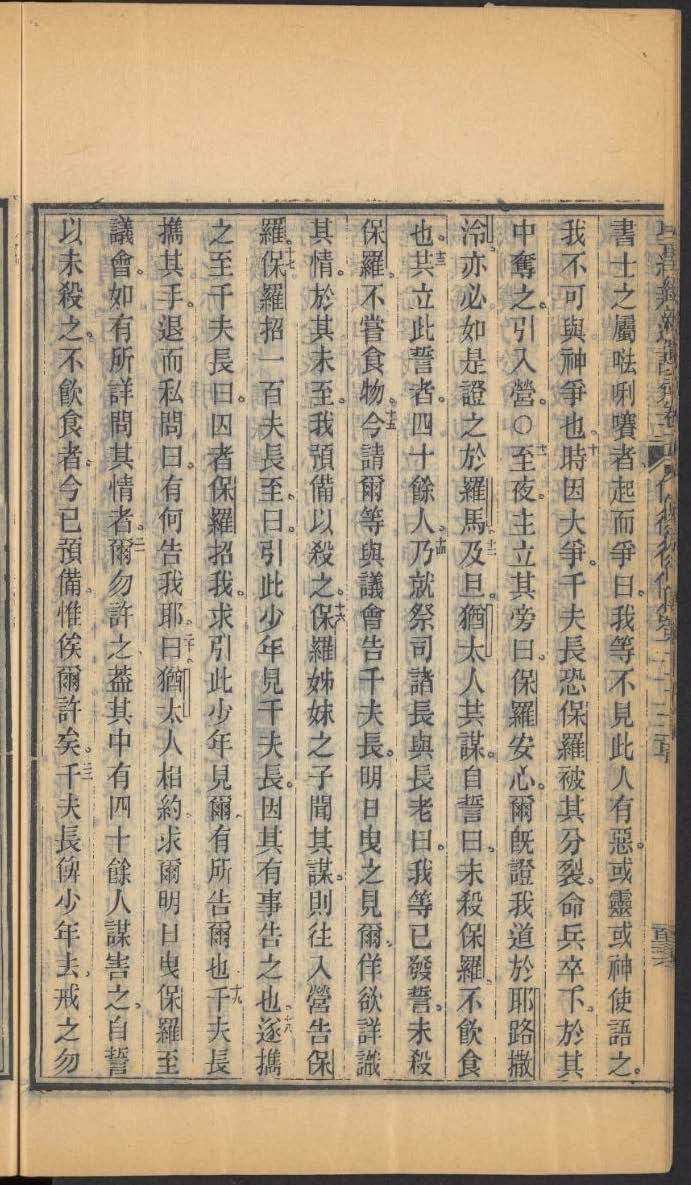 書士之屬㗭唎㘔者起而爭曰。我等不見此人有惡。或靈或神使語之。
我不可與神爭也。十時因大爭。千夫長恐保羅被其分裂。命兵卒下。於其
中奪之。引入營。〇十一至夜。主立其旁曰。保羅安心。爾旣證我道於耶路撒
泠。亦必如是證之於羅馬。十二及旦。猶太人共謀。自誓曰。未殺保羅。不飲食
也。十三共立此誓者。四十餘人。十四乃就祭司諸長與長老曰。我等已發誓。未殺
保羅。不嘗食物。十五今請爾等與議會告千夫長。明日曳之見爾。佯欲詳識
其情。於其未至。我預備以殺之。十六保羅姊妹之子聞其謀。則往入營告保
羅。十七保羅招一百夫長至。曰。引此少年見千夫長。因其有事告之也。十八遂擕
之至千夫長曰。囚者保羅招我。求引此少年見爾。有所告爾也。十九千夫長
擕其手。退而私問曰。有何告我耶。二十曰。猶太人相約求爾明日曳保羅至
議會。如有所詳問其情者。二一爾勿許之。葢其中有四十餘人謀害之。自誓
以未殺之。不飲食者。今已預備。惟俟爾許矣。二二千夫長俾少年去。戒之勿